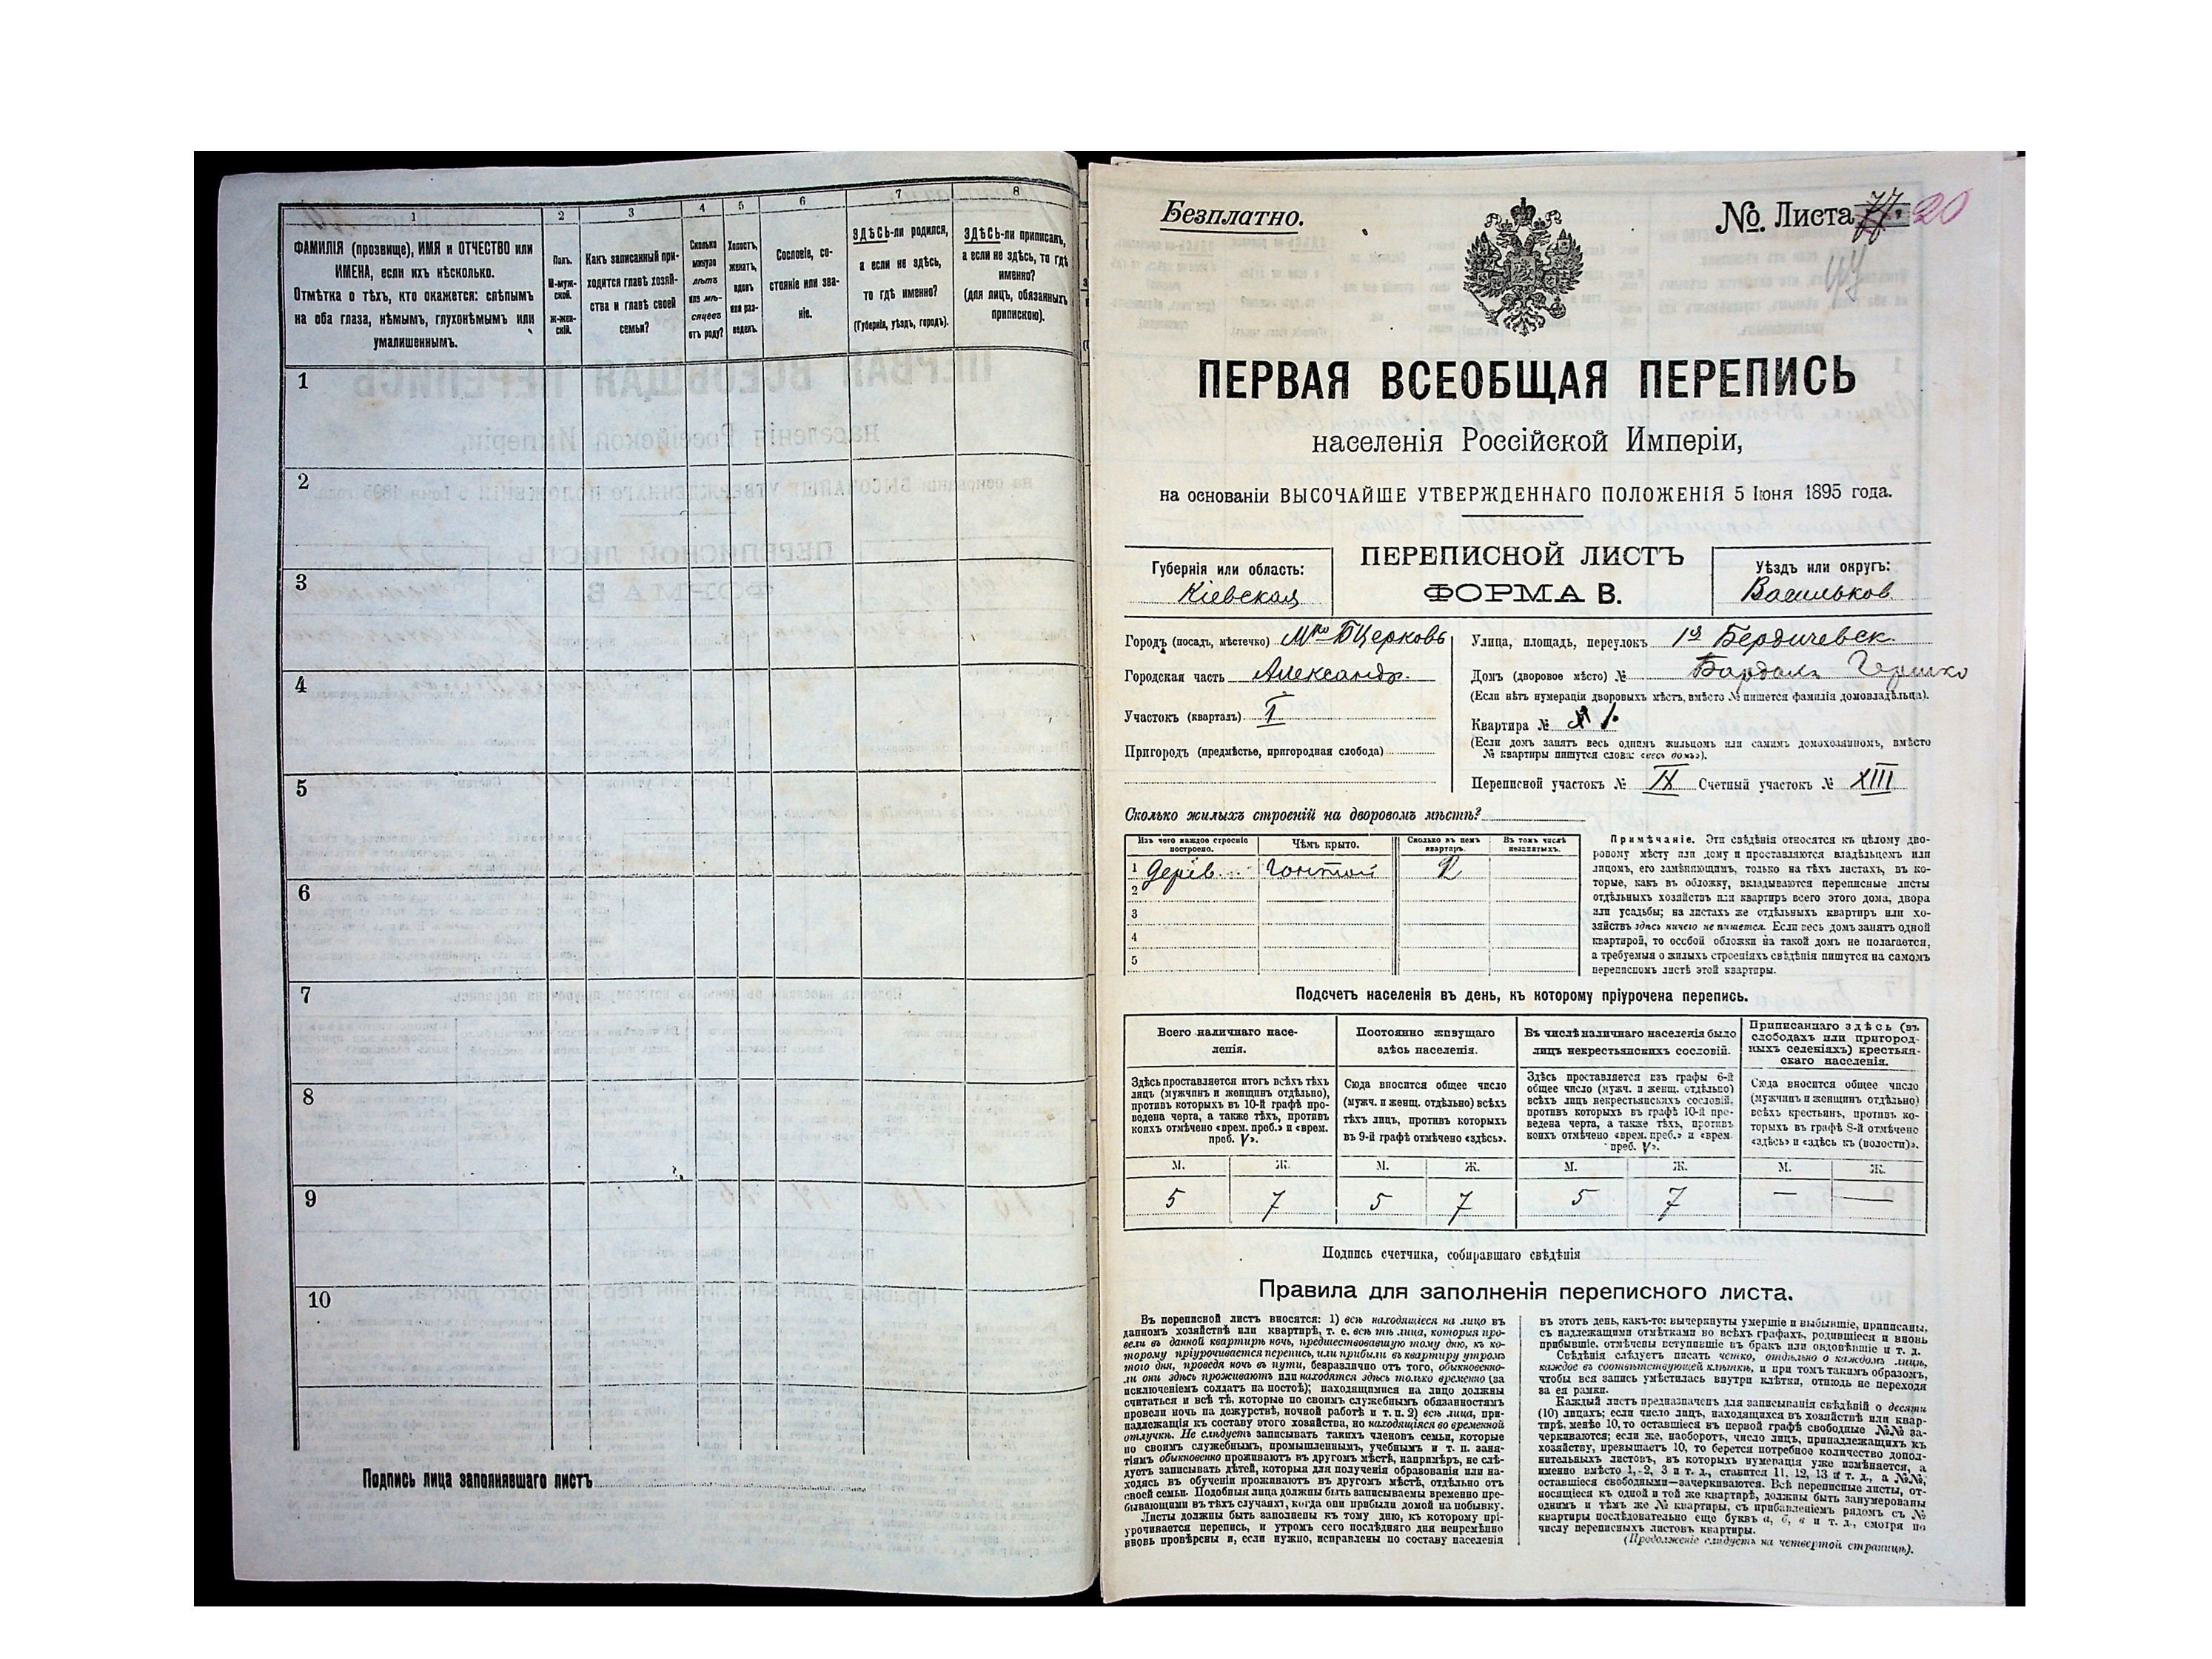 1
2
3
4
5
6
7
8
ФАМИЛІЯ (прозвище), ИМЯ и ОТЧЕСТВО или
ИМЕНА, если ихъ нѣсколько.
Отмѣтка о тѣхъ, кто окажется: слѣпымъ
на оба глаза, нѣмымъ, глухонѣмымъ или
умалишеннымъ.
Полъ.
М-муж-
ской.
Ж-жен-
скій.
Какъ записанный при-
ходится главѣ хозяй-
ства и главѣ своей
семьи?
Сколько
минуло
лѣтъ
или мѣ-
сяцевъ
отъ роду?
Холостъ,
женатъ,
вдовъ
или раз-
веденъ.
Сословіе, со-
стояніе или зва-
ніе.
ЗДѢСЬ-ли родился,
а если не здѣсь,
то гдѣ именно?
(Губернія, уѣздъ, городъ).
ЗДѢСЬ-ли приписанъ,
а если не здѣсь, то гдѣ
именно?
(для лицъ, обязанныхъ
припискою).
1
2
3
4
5
6
7
8
9
10
Подпись лица заполнявшаго листъ
Безплатно.
№. Листа 77 20
ПЕРВАЯ ВСЕОБЩАЯ ПЕРЕПИСЬ
населенія Россійской Имперіи,
на основаніи ВЫСОЧАЙШЕ УТВЕРЖДЕННАГО ПОЛОЖЕНІЯ 5 Іюня 1895 года.
Губернія или область:
Кіевская
ПЕРЕПИСНОЙ ЛИСТЪ
ФОРМА В.
Уѣздъ или округъ:
Васильков
Городъ (посадъ, мѣстечко) Мко БЦерковь
Городская часть Александр.
Участокъ (кварталъ) I
Пригородъ (предмѣстье, пригородная слобода)
Улица, площадь, переулокъ 1я Бердичевск.
Домъ (дворовое мѣсто) № Гершко
(Если нѣтъ нумераціи дворовыхъ мѣстъ, вмѣсто № пишется фамилія домовладѣльца).
Квартира № 1.
(Если домъ занятъ весь однимъ жильцомъ или самимъ домохозяиномъ, вмѣсто
№ квартиры пишутся слова: «весь домъ»).
Переписной участокъ № IX Счетный участокъ № XIII
Сколько жилыхъ строеній на дворовомъ мѣстѣ?
Изъ чего каждое строеніе
построено.
Чѣмъ крыто.
Сколько въ немъ
квартиръ.
Въ томъ числѣ
незанятыхъ.
1 Дерів. Гонтой 2
2
3
4
5
Примѣчаніе. Эти свѣдѣнія относятся къ цѣлому дво-
ровому мѣсту или дому и проставляются владѣльцемъ или
лицомъ, его замѣняющимъ, только на тѣхъ листахъ, въ ко-
торые, какъ въ обложку, вкладываются переписные листы
отдѣльныхъ хозяйствъ или квартиръ всего этого дома, двора
или усадьбы; на листахъ же отдѣльныхъ квартиръ или хо-
зяйствъ здѣсь ничего не пишется. Если весь домъ занятъ одной
квартирой, то особой обложки на такой домъ не полагается,
а требуемыя о жилыхъ строеніяхъ свѣдѣнія пишутся на самомъ
переписномъ листѣ этой квартиры.
Подсчетъ населенія въ день, къ которому пріурочена перепись.
Всего наличнаго насе-
ленія.
Постоянно живущаго
здѣсь населенія.
Въ числѣ наличнаго населенія было
лицъ некрестьянскихъ сословій.
Приписаннаго здѣсь (въ
слободахъ или пригород-
ныхъ селеніяхъ) крестьян-
скаго населенія.
Здѣсь проставляется итогъ всѣхъ тѣхъ
лицъ (мужчинъ и женщинъ отдѣльно),
противъ которыхъ въ 10-й графѣ про-
ведена черта, а также тѣхъ, противъ
коихъ отмѣчено «врем. преб.» и «врем.
преб. V».
Сюда вносится общее число
(мужч. и женщ. отдѣльно) всѣхъ
тѣхъ лицъ, противъ которыхъ
въ 9-й графѣ отмѣчено «здѣсь».
Здѣсь проставляется изъ графы 6-й
общее число (мужч. и женщ. отдѣльно)
всѣхъ лицъ некрестьянскихъ сословій,
противъ которыхъ въ графѣ 10-й про-
ведена черта, а также тѣхъ, противъ
коихъ отмѣчено «врем. преб.» и «врем.
преб. V».
Сюда вносится общее число
(мужчинъ и женщинъ отдѣльно)
всѣхъ крестьянъ, противъ ко-
торыхъ въ графѣ 8-й отмѣчено
«здѣсь» и «здѣсь къ (волости)».
М. Ж. М. Ж. М. Ж. М. Ж.
5 7 5 7 5 7 — —
Подпись счетчика, собиравшаго свѣдѣнія
Правила для заполненія переписного листа.
Въ переписной листъ вносятся: 1) всѣ находящіеся на лицо въ
данномъ хозяйствѣ или квартирѣ, т. е. всѣ тѣ лица, которыя про-
вели въ данной квартирѣ ночь, предшествовавшую тому дню, къ ко-
торому пріурочивается перепись, или прибыли въ квартиру утромъ
того дня, проведя ночь въ пути, безразлично отъ того, обыкновенно-
ли они здѣсь проживаютъ или находятся здѣсь только временно (за
исключеніемъ солдатъ на постоѣ); находящимися на лицо должны
считаться и всѣ тѣ, которые по своимъ служебнымъ обязанностямъ
провели ночь на дежурствѣ, ночной работѣ и т. п. 2) всѣ лица, при-
надлежащія къ составу этого хозяйства, но находящіяся во временной
отлучкѣ. Не слѣдуетъ записывать такихъ членовъ семьи, которые
по своимъ служебнымъ, промышленнымъ, учебнымъ и т. п. заня-
тіямъ обыкновенно проживаютъ въ другомъ мѣстѣ, напримѣръ, не слѣ-
дуетъ записывать дѣтей, которыя для полученія образованія или на-
ходясь въ обученіи проживаютъ въ другомъ мѣстѣ, отдѣльно отъ
своей семьи. Подобныя лица должны быть записываемы временно пре-
бывающими въ тѣхъ случаяхъ, когда они прибыли домой на побывку.
Листы должны быть заполнены къ тому дню, къ которому прі-
урочивается перепись, и утромъ сего послѣдняго дня непремѣнно
вновь провѣрены и, если нужно, исправлены по составу населенія
въ этотъ день, какъ-то: вычеркнуты умершіе и выбывшіе, приписаны,
съ надлежащими отмѣтками во всѣхъ графахъ, родившіеся и вновь
прибывшіе, отмѣчены вступившіе въ бракъ или овдовѣвшіе и т. д.
Свѣдѣнія слѣдуетъ писать четко, отдѣльно о каждомъ лицѣ,
каждое въ соотвѣтствующей клѣткѣ, и при томъ такимъ образомъ,
чтобы вся запись умѣстилась внутри клѣтки, отнюдь не переходя
за ея рамки.
Каждый листъ предназначенъ для записыванія свѣдѣній о десяти
(10) лицахъ; если число лицъ, находящихся въ хозяйствѣ или квар-
тирѣ, менѣе 10, то оставшіеся въ первой графѣ свободные №№ за-
черкиваются; если же, наоборотъ, число лицъ, принадлежащихъ къ
хозяйству, превышаетъ 10, то берется потребное количество допол-
нительныхъ листовъ, въ которыхъ нумерація уже измѣняется, а
именно вмѣсто 1, 2, 3 и т. д., ставится 11, 12, 13 и т. д., а №№,
оставшіеся свободными—зачеркиваются. Всѣ переписные листы, от-
носящіеся къ одной и той же квартирѣ, должны быть занумерованы
однимъ и тѣмъ же № квартиры, съ прибавленіемъ рядомъ съ №
квартиры послѣдовательно еще буквъ а, б, в и т. д., смотря по
числу переписныхъ листовъ квартиры.
(Продолженіе слѣдуетъ на четвертой страницѣ).